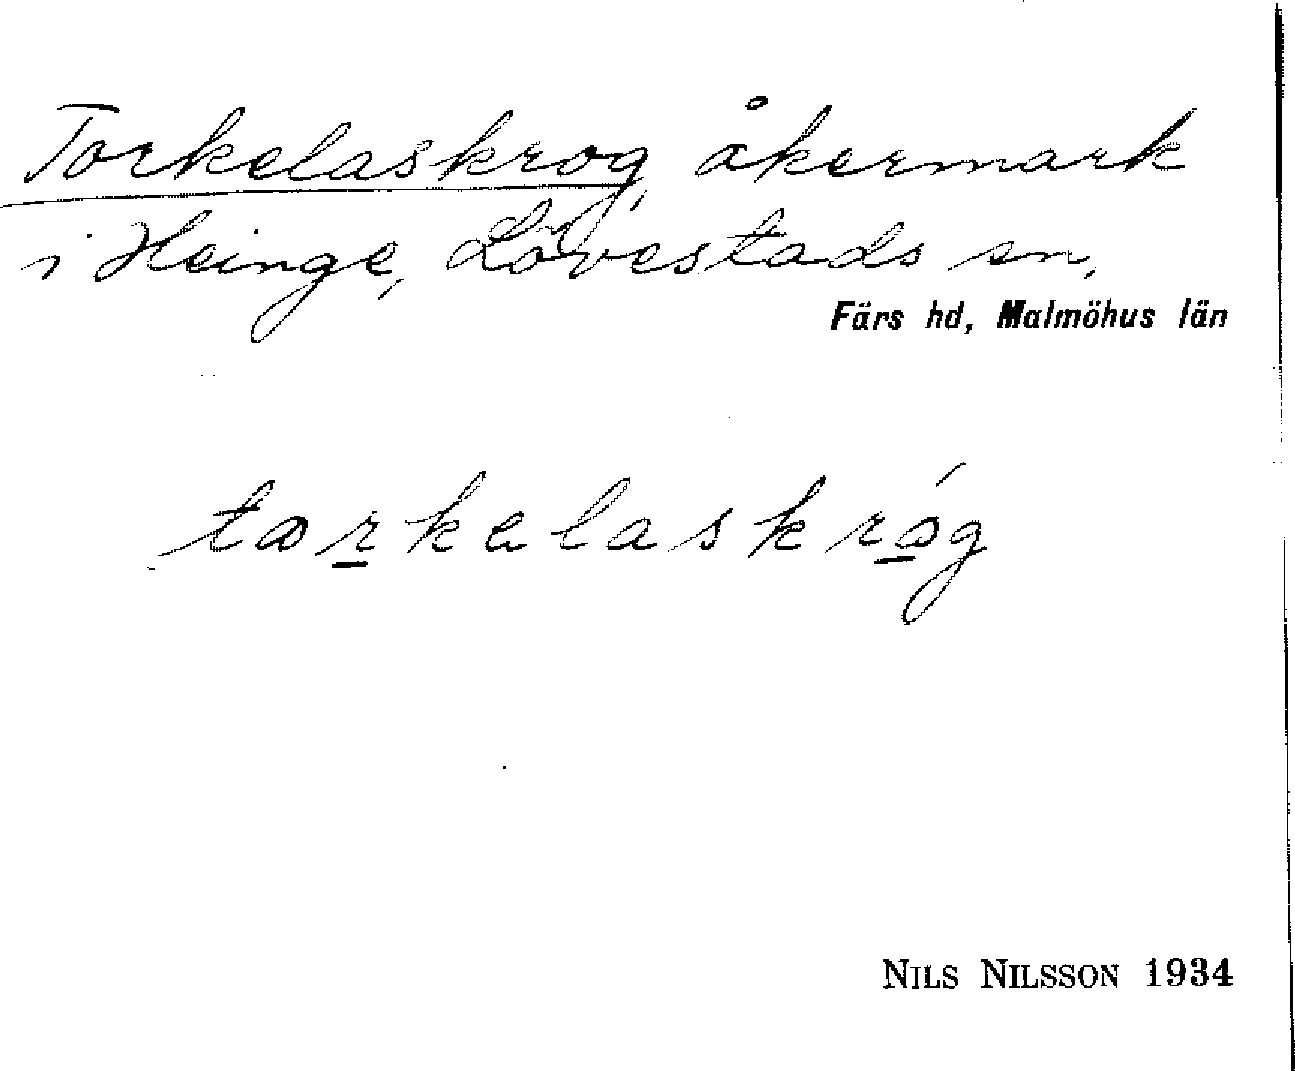 Torkelaskrog, åkermark
i Heinge, Lövestads sn,
Färs hd, Malmöhus län
torkelaskróg
NILS NILSSON 1934